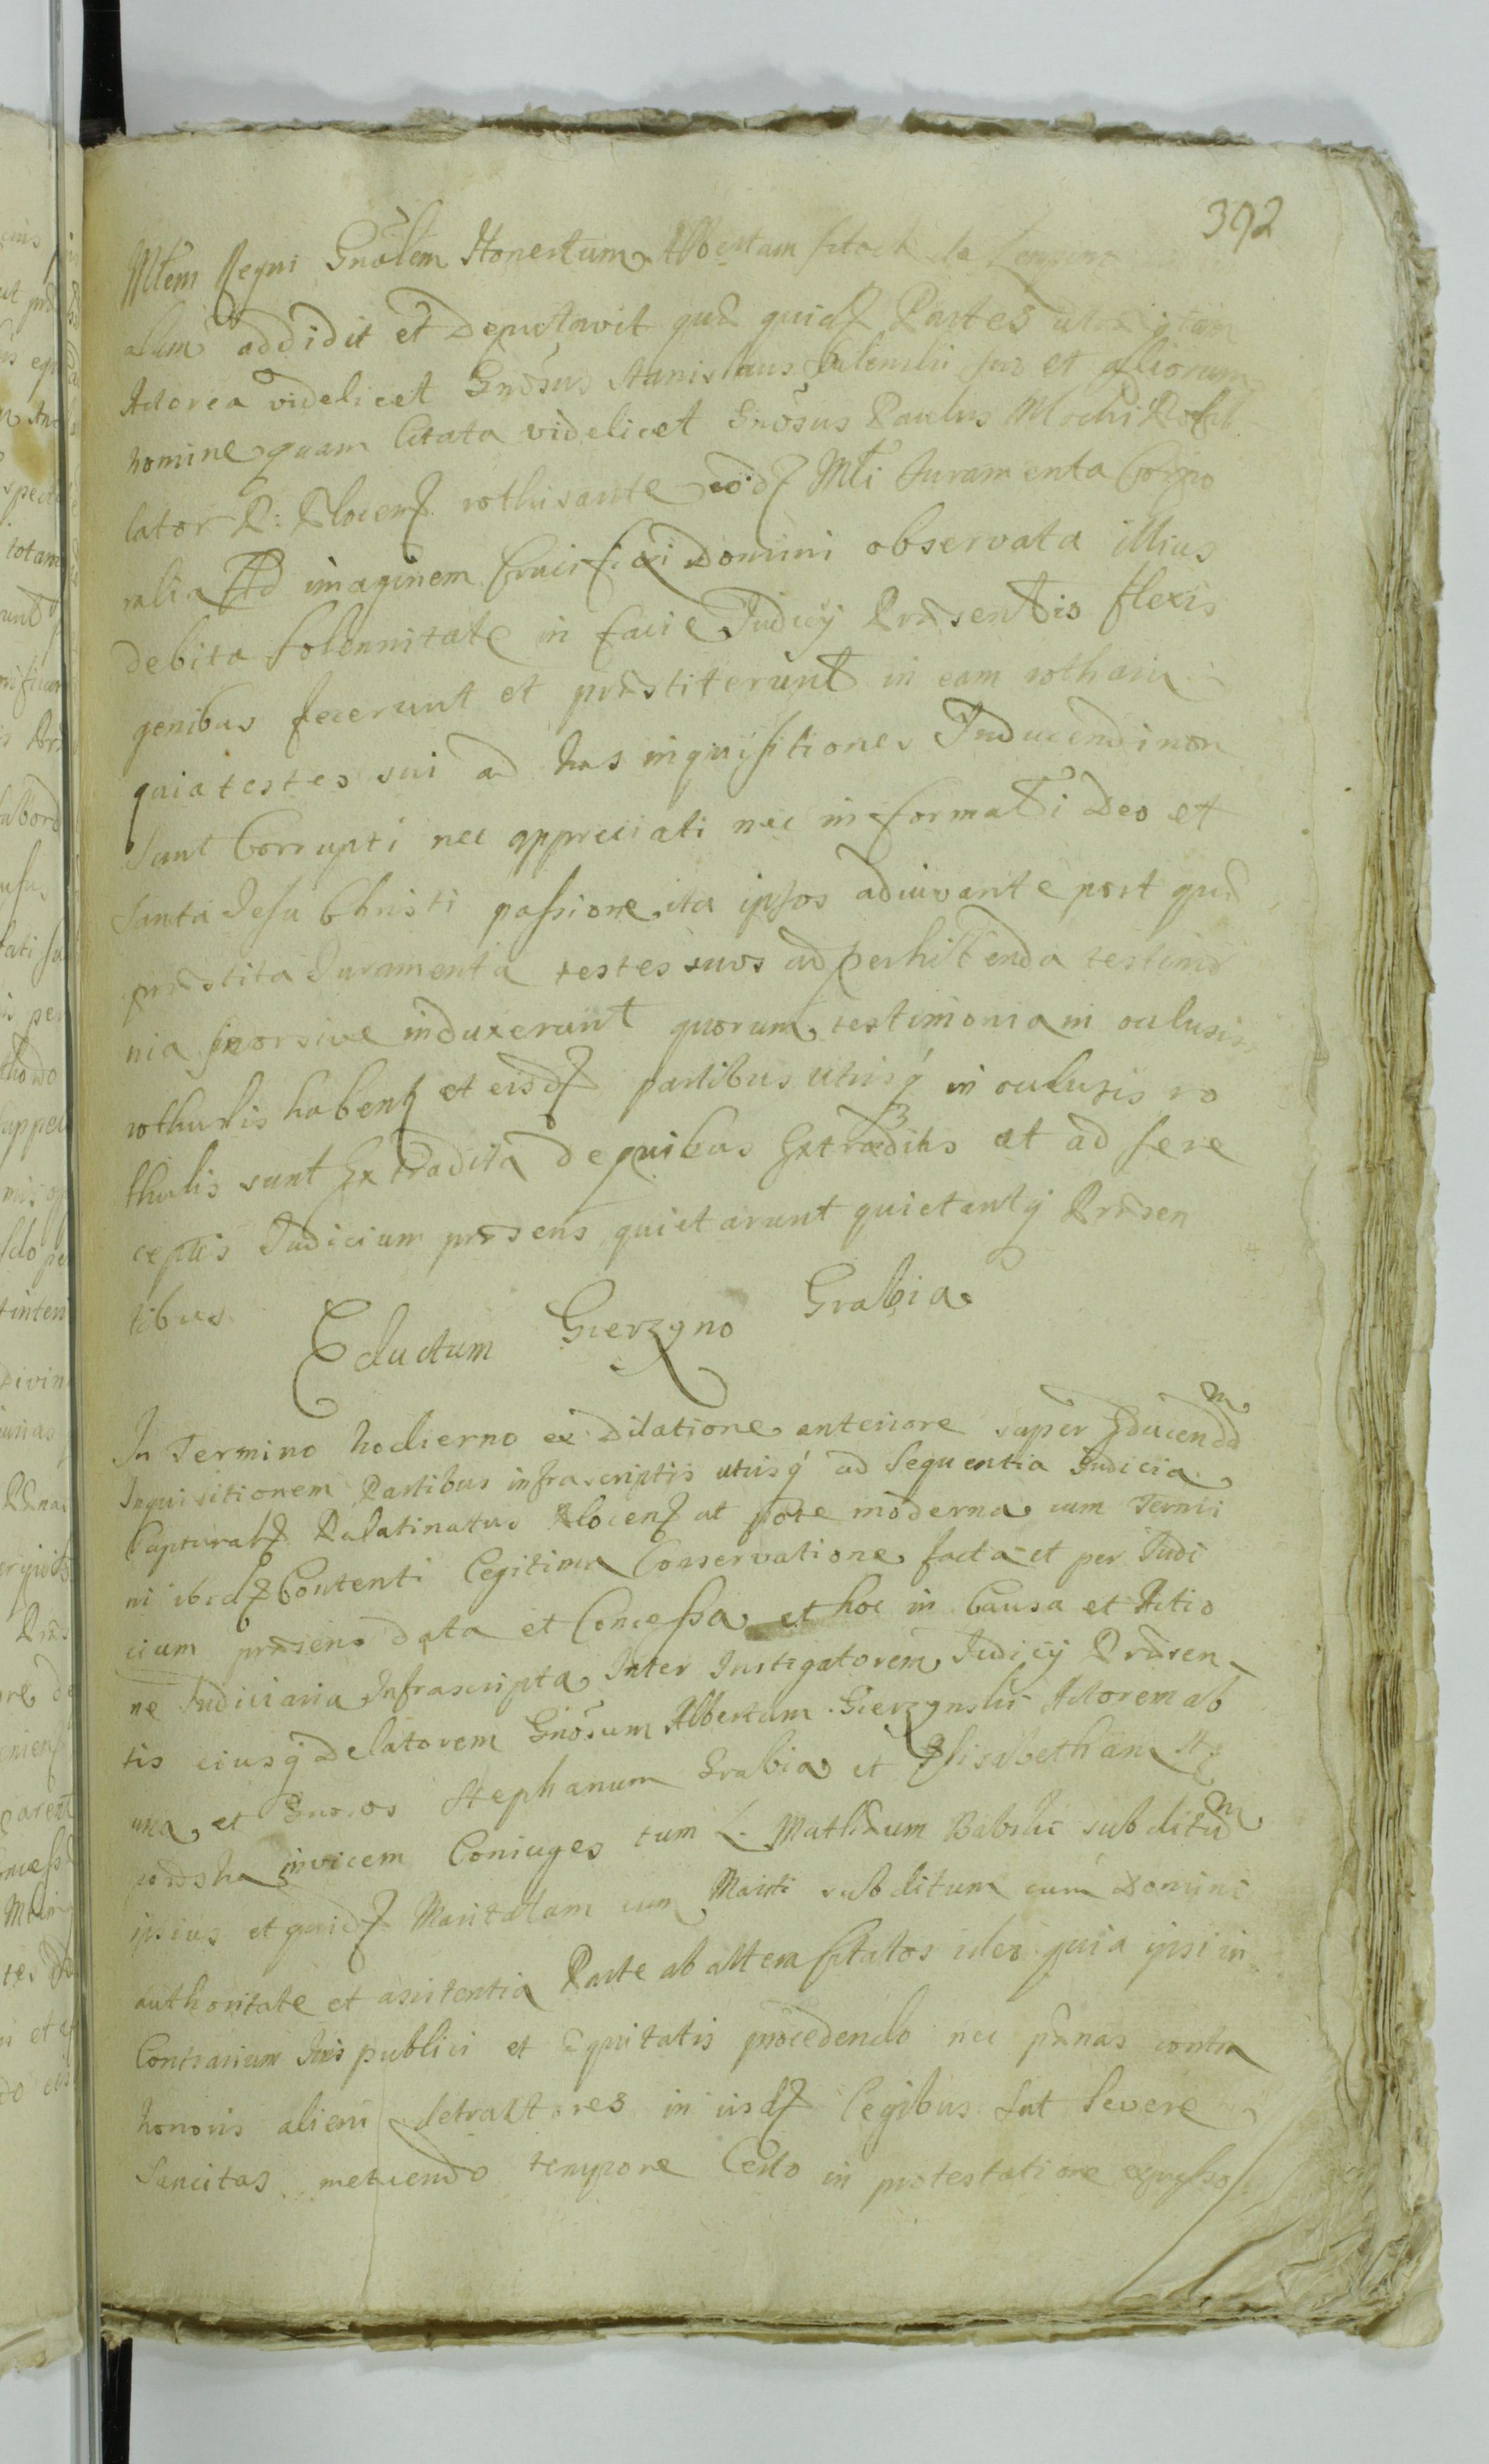 392
Mtem Regni Gnalem Honestum Albertum de
alem addidit et Deputavit quae quidz Partes
Actorea videlicet Gnosus Stanislaus suo et aliorum
nomine quam Citata videlicet Gnosus Paulus Mochi
lator P: Plocenz rothisante eodz Mti Juramenta Corpo
ralia Ad imaginem Crucifixi Domini observata illius
debita Solennitate in facie Judicij Praesentis flexis
genibus fecerunt et praestiterunt in eam rotham
quia testes sui ad has inquisitiones Inducendi non
sunt Corrupti nec appreciati nec informati Deo et
Santa Jesu Christi passione ita ipsos adiuvante post quae
praestita Juramenta testes suos ad perhibenda testimo
nia seorsive induxerunt quorum testimonia in oclusis
rothulis habentz et eisdz partibus utrisq in oclusis ro
thulis sunt Extradita de quibus Extraditis et ad se re
ceptis Judicium praesens quietarunt quietantq Praesen
tibus
Eductum Gierzyno Grabia
In Termino hodierno ex dilatione anteriore super Educendam
Inquisitionem Partibus infrascriptis utrisq ad Sequentia Judicia
Capturalz Palatinatus Plocenz ut pote moderna cum Termi
ni ibidz Contenti Legitima Conservatione facta et per Judi
cium praesens data et Concessa et hoc in Causa et Actio
ne Judiciaria Infrascripta Inter Instigatorem Judicij Praesen
tis eiusq Delatorem Gnosum Albertum Gierzynski Actorem ab
una et Gnosos Stephanum Grabia et Elisabetham
invicem Coniuges tum L. Mathaeum Babski subditum
ipsius et quidz Maritatam cum Marito subditum cum Domini
authoritate et assistentia Parte ab altera Citatos ideo quia ipsi in
Contrarium Juris publici et Equitatis procedendo nec paenas contra
honoris alieni detractores in iisdz Legibus sat Severe
Sancitas metuendo tempore Certo in protestatione expresso